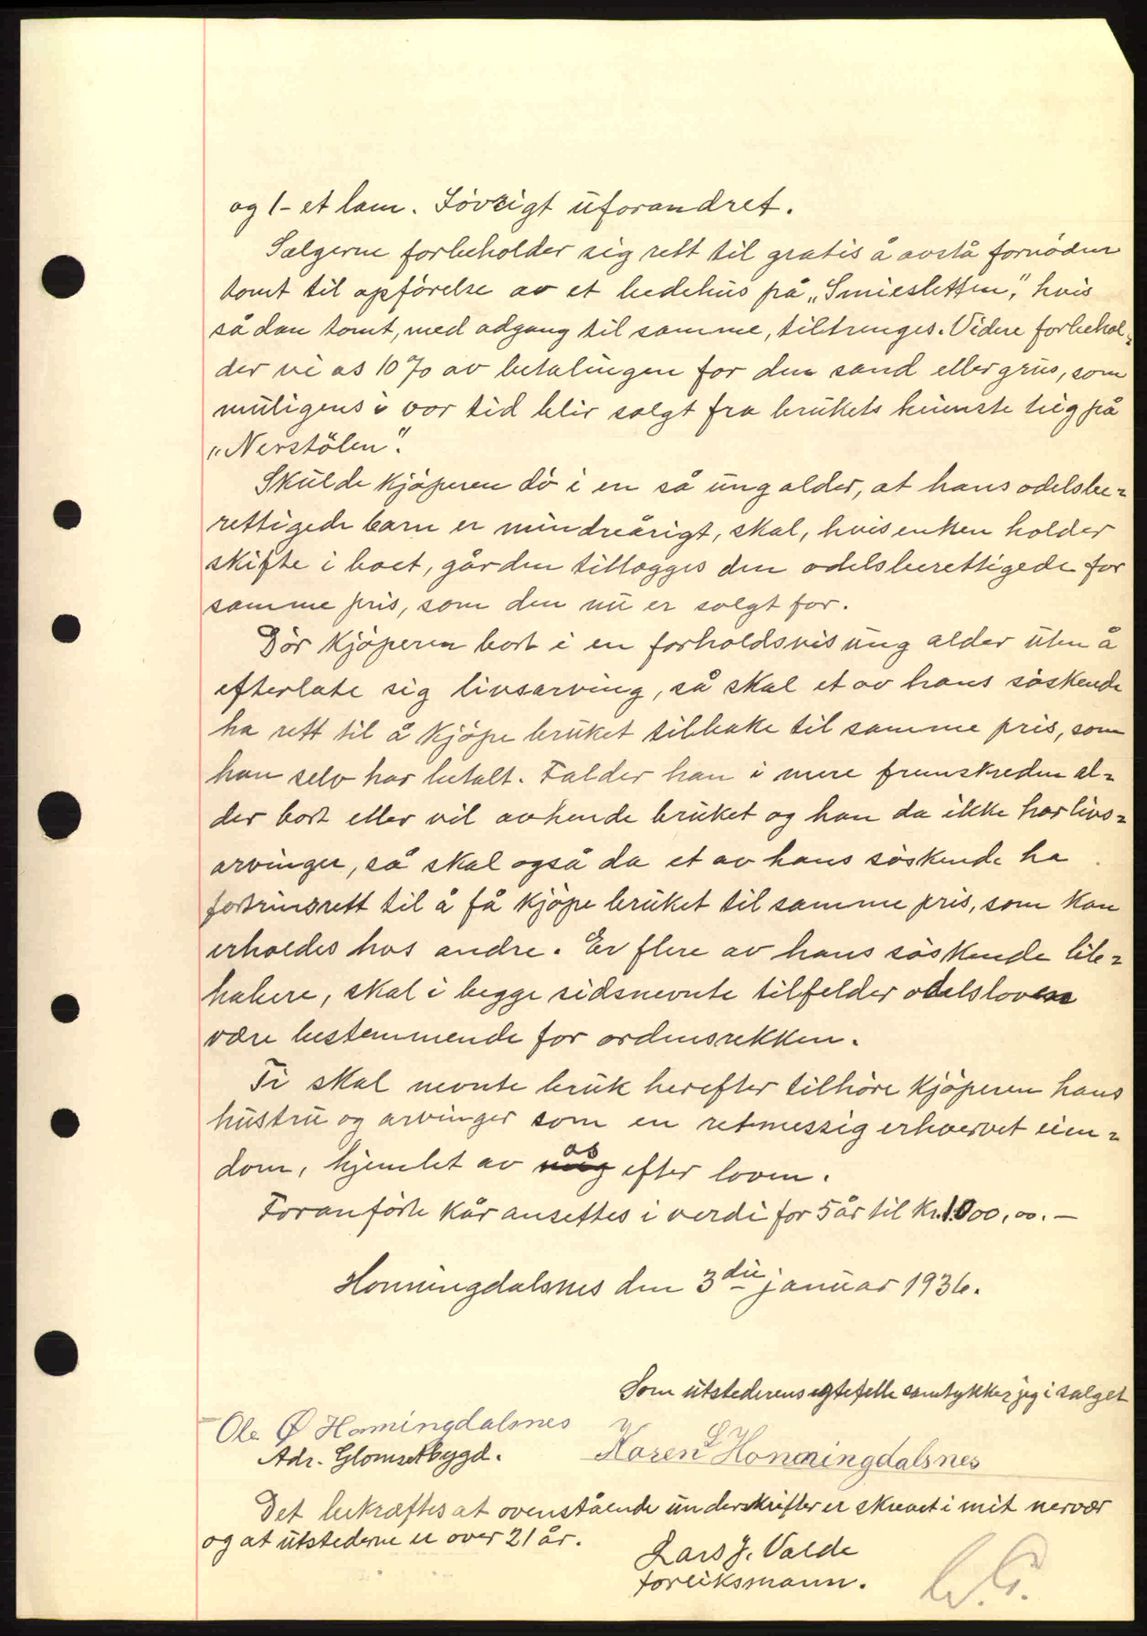 og 1- et lam. Iøvrigt uforandret.
Selgerne forbeholder sig rett til gratis å avstå fornøden
tomt til opførelse av et bedehus på „Smiesletten", hvis
sådan tomt, med adgang til samme, tiltrenges. Videre forbehol-
der vi os 10% av betalingen for den sand eller grus, som
muligens i vor tid blir solgt fra brukets teig på
„Nerstølen".
Skulde kjøperen dø i en så ung alder, at hans odelsbe-
rettigede barn er mindreårigt, skal, hvis enken holder
skifte i boet, gården tillegges den odelsberettigede for
samme pris, som den nu er solgt for.
Dør kjøperen bort i en forholdsvis ung alder uten å
efterlate sig livsarving, så skal et av hans søskende
ha rett til å kjøpe bruket tilbake til samme pris, som
han selv har betalt. Falder han i mere fremskreden al-
der bort eller vil avhende bruket og han da ikke har livs-
arvinger, så skal også da et av hans søskende ha
fortrinsrett til å få kjøpe bruket til samme pris, som kan
erholdes hos andre. Er flere av hans søskende lib-
habere, skal i begge sidsnevnte tilfelder odelsloven
være bestemmende for ordensrekken.
Ti skal nevnte bruk herefter tilhøre kjøperen hans
hustru og arvinger som en retmessig erhvervet eien-
dom, hjemlet av os efter loven.
Foranførte kår ansettes i verdi for 5 år til kr. 1000,00.-
Honningdalsnes den 3die januar 1936.
Som utstederens egtefelle samtykker jeg i salget
Ole Ø Honningdalsnes
Adr. Glomsetbygd.
Karen L Honningdalsnes
Det bekræftes at ovenstående underskrifter er skrevet i mit nervær
og at utstederne er over 21 år.
Lars J. Valde
forliksmann.